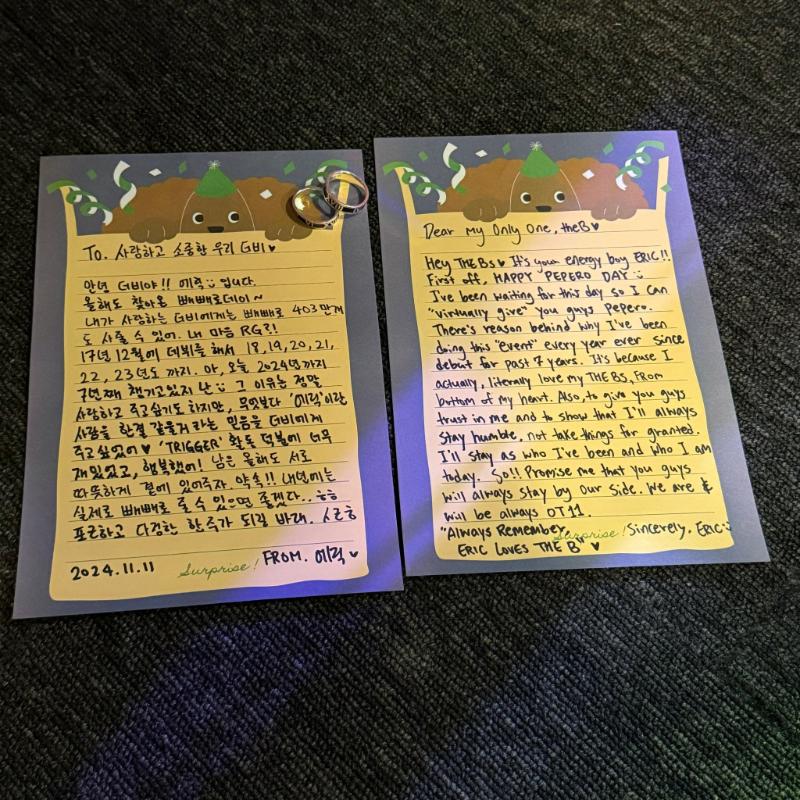 To. 사랑하고 소중한 우리 더비♥
안녕 더비야!! 에릭ㅎ 입니다.
올해도 찾아온 빼빼로데이~
내가 사랑하는 더비에게는 빼빼로 403만개
도 사줄 수 있어. 내 마음 RG?!
17년 12월에 데뷔를 해서 18,19,20,21,
22, 23년도 까지. 아, 오늘, 2024년까지
7년째 챙기고있지 난 그 이유는 정말
사랑하고 주고싶기도 하지만, 무엇보다 '에릭'이란
사람은 한결 같을거라는 믿음을 더비에게
주고 싶었어♥ 'TRIGGER' 활동 덕분에 너무
재밌었고, 행복했어! 남은 올해도 서로
따뜻하게 곁에 있어주자 약속!! 내년에는
실제로 빼빼로 줄 수 있으면 좋겠다..
포근하고 다정한 한주가 되길 바래.
2024.11.11
Surprise!
FROM. 에릭♥
Dear My Only One, theB♥
Hey THE Bs♥ It's your energy boy ERIC!!
First off, HAPPY PEPERO DAY
I've been waiting for this day so I can
"virtually give" you guys Pepero.
There's reason behind why I've been
doing this "event" every year ever since
debut for past 7 years. It's because I
actually, literally love my THE Bs, From
bottom of my heart. Also, to give you guys
trust in me and to show that I'll always
stay humble, not take things for granted.
I'll stay as who I've been and who I am
today. So!! Promise me that you guys
will always stay by our side. We are &
will be always OT11.
"Always Remember,
Surprise!
Sincerely, ERIC
ERIC Loves THE B" ♥